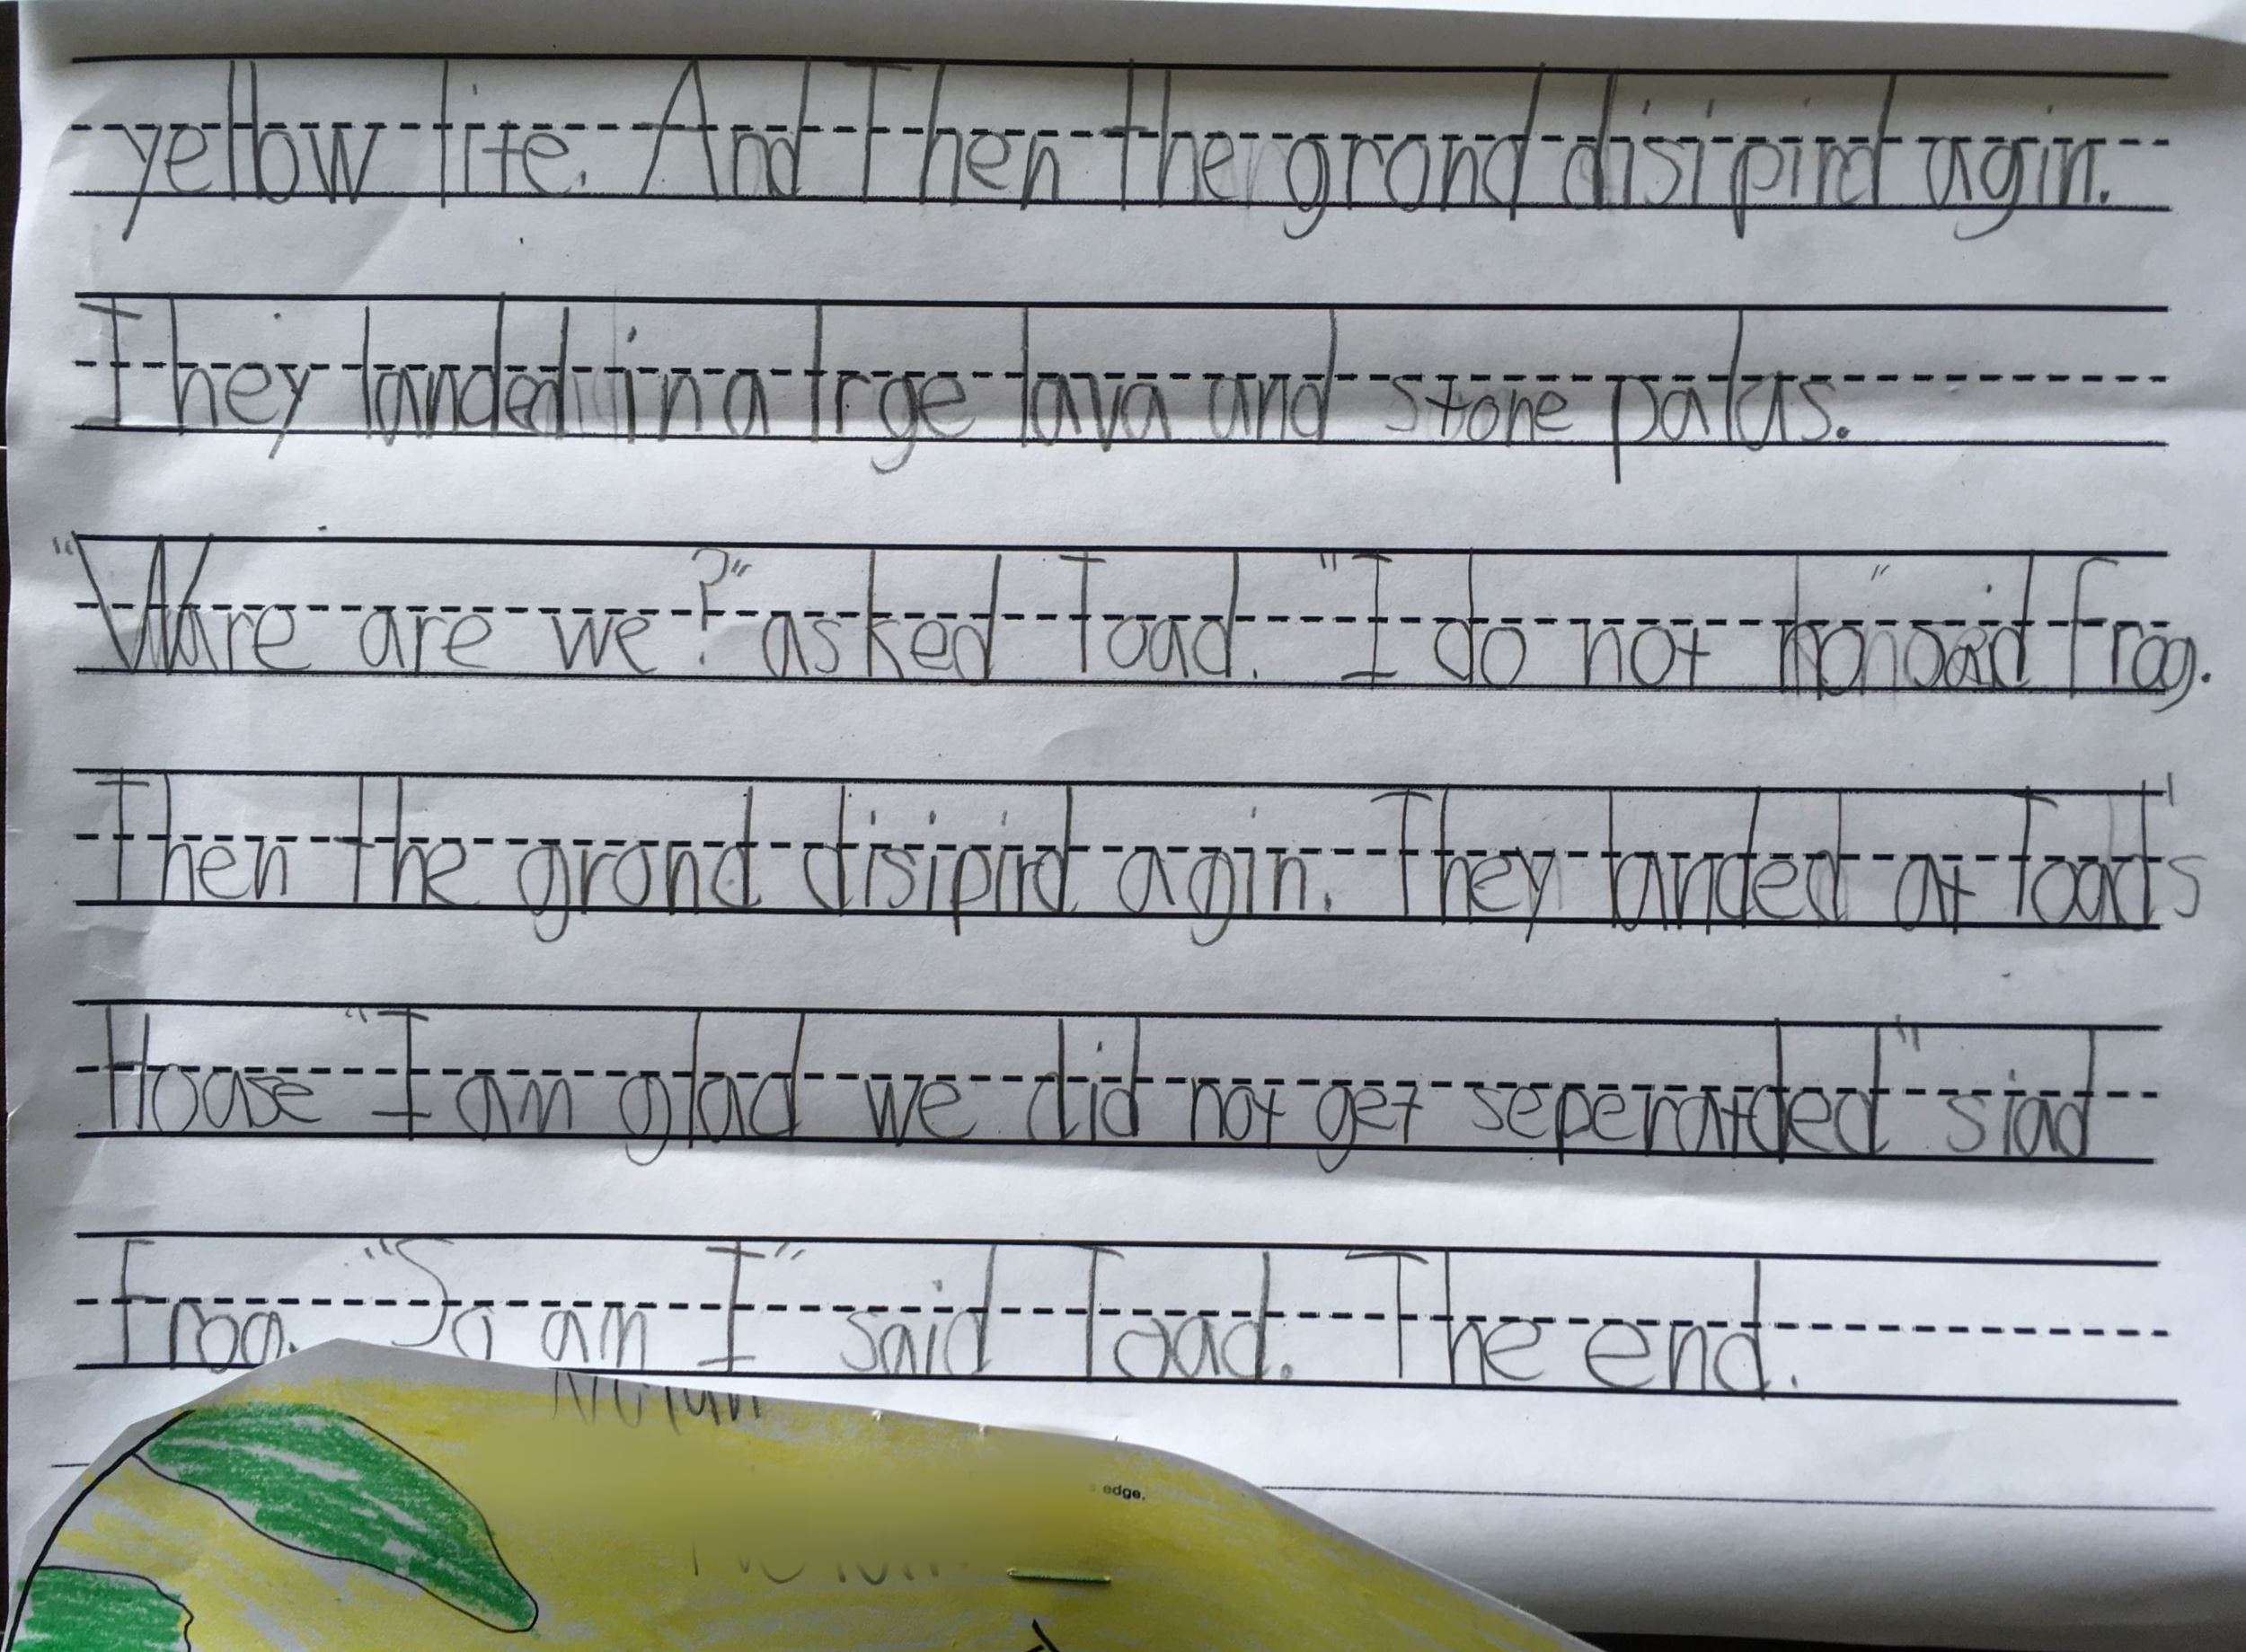 yellow lite. And Then the grond disipird agin.
They landed in a lrge lava and stone palas.
"Ware are we?" asked Toad. "I do not " said frog.
Then the grond disipird agin. They landed at Toad's
Hoase "I am glad we did not get seperatded" siad
Frog. "So am I" said Toad. The end.
edge.